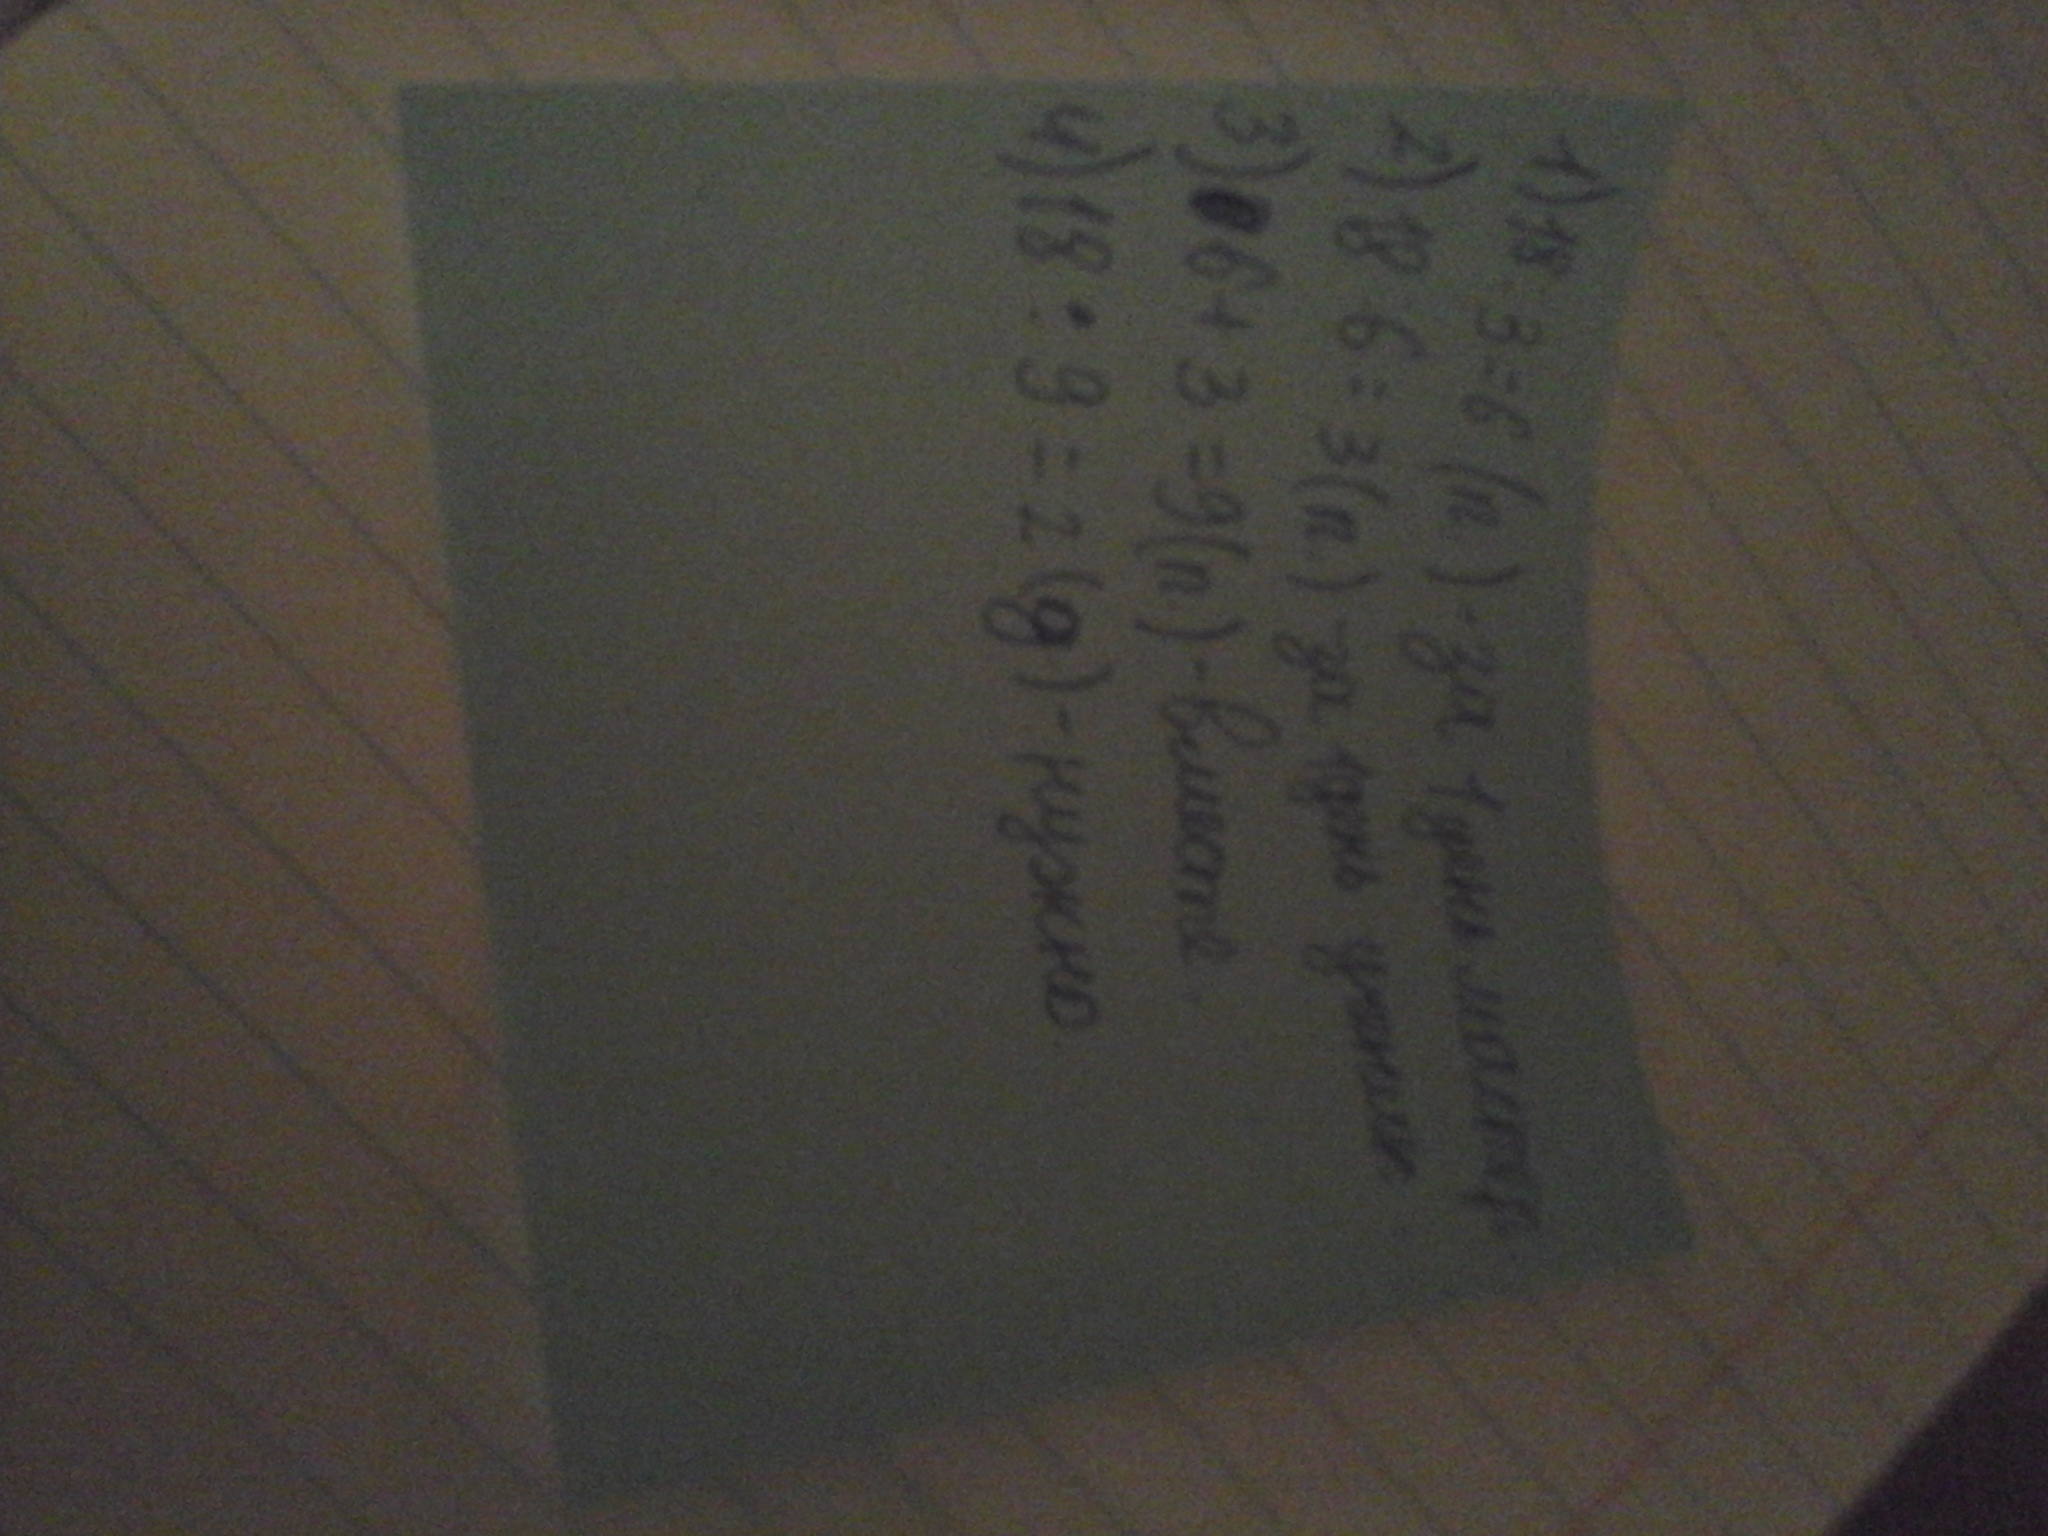 1) 18:3=6 (п.) - за 1 день мастер
2) 18:6=3 (п.) - за 1 день ученик
3) 6+3=9(п.) - вместе
4) 18:9=2(д) - нужно